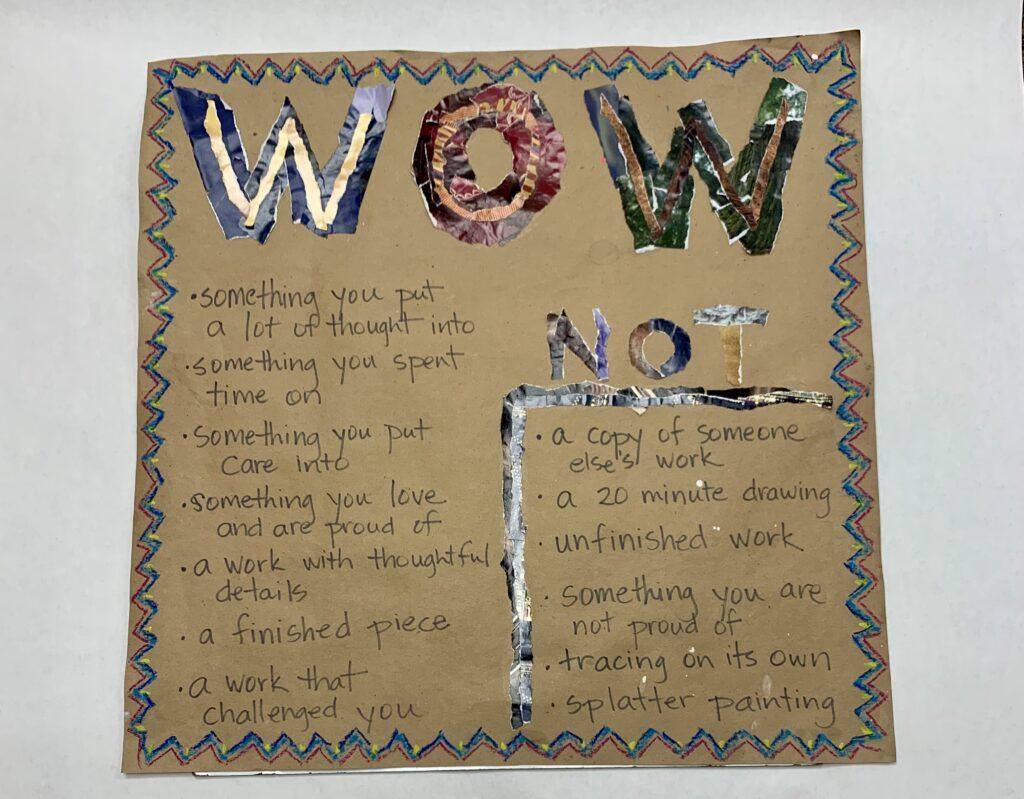 WOW
• something you put
a lot of thought into
• something you spent
time on
• something you put
care into
• something you love
and are proud of
• a work with thoughtful
details
• a finished piece
• a work that
challenged you
NOT
• a copy of someone
else's work
• a 20 minute drawing
• unfinished work
• something you are
not proud of
• tracing on its own
• splatter painting